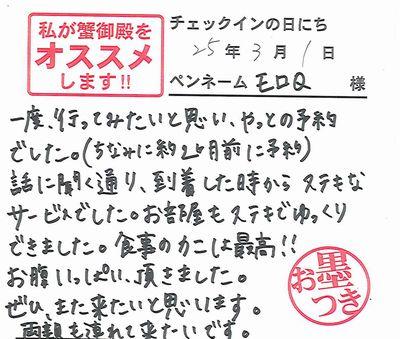 私が蟹御殿を
オススメ
します!!
チェックインの日にち
25年3月1日
ペンネーム モロQ 様
一度、行ってみたいと思い、やっとの予約
でした。(ちなみに約2ヶ月前に予約)
話に聞く通り、到着した時からステキな
サービスでした。お部屋もステキでゆっくり
できました。食事のカニは最高!!
お腹いっぱい、頂きました。
ぜひ、また来たいと思います。
両親も連れて来たいです。
お墨つき